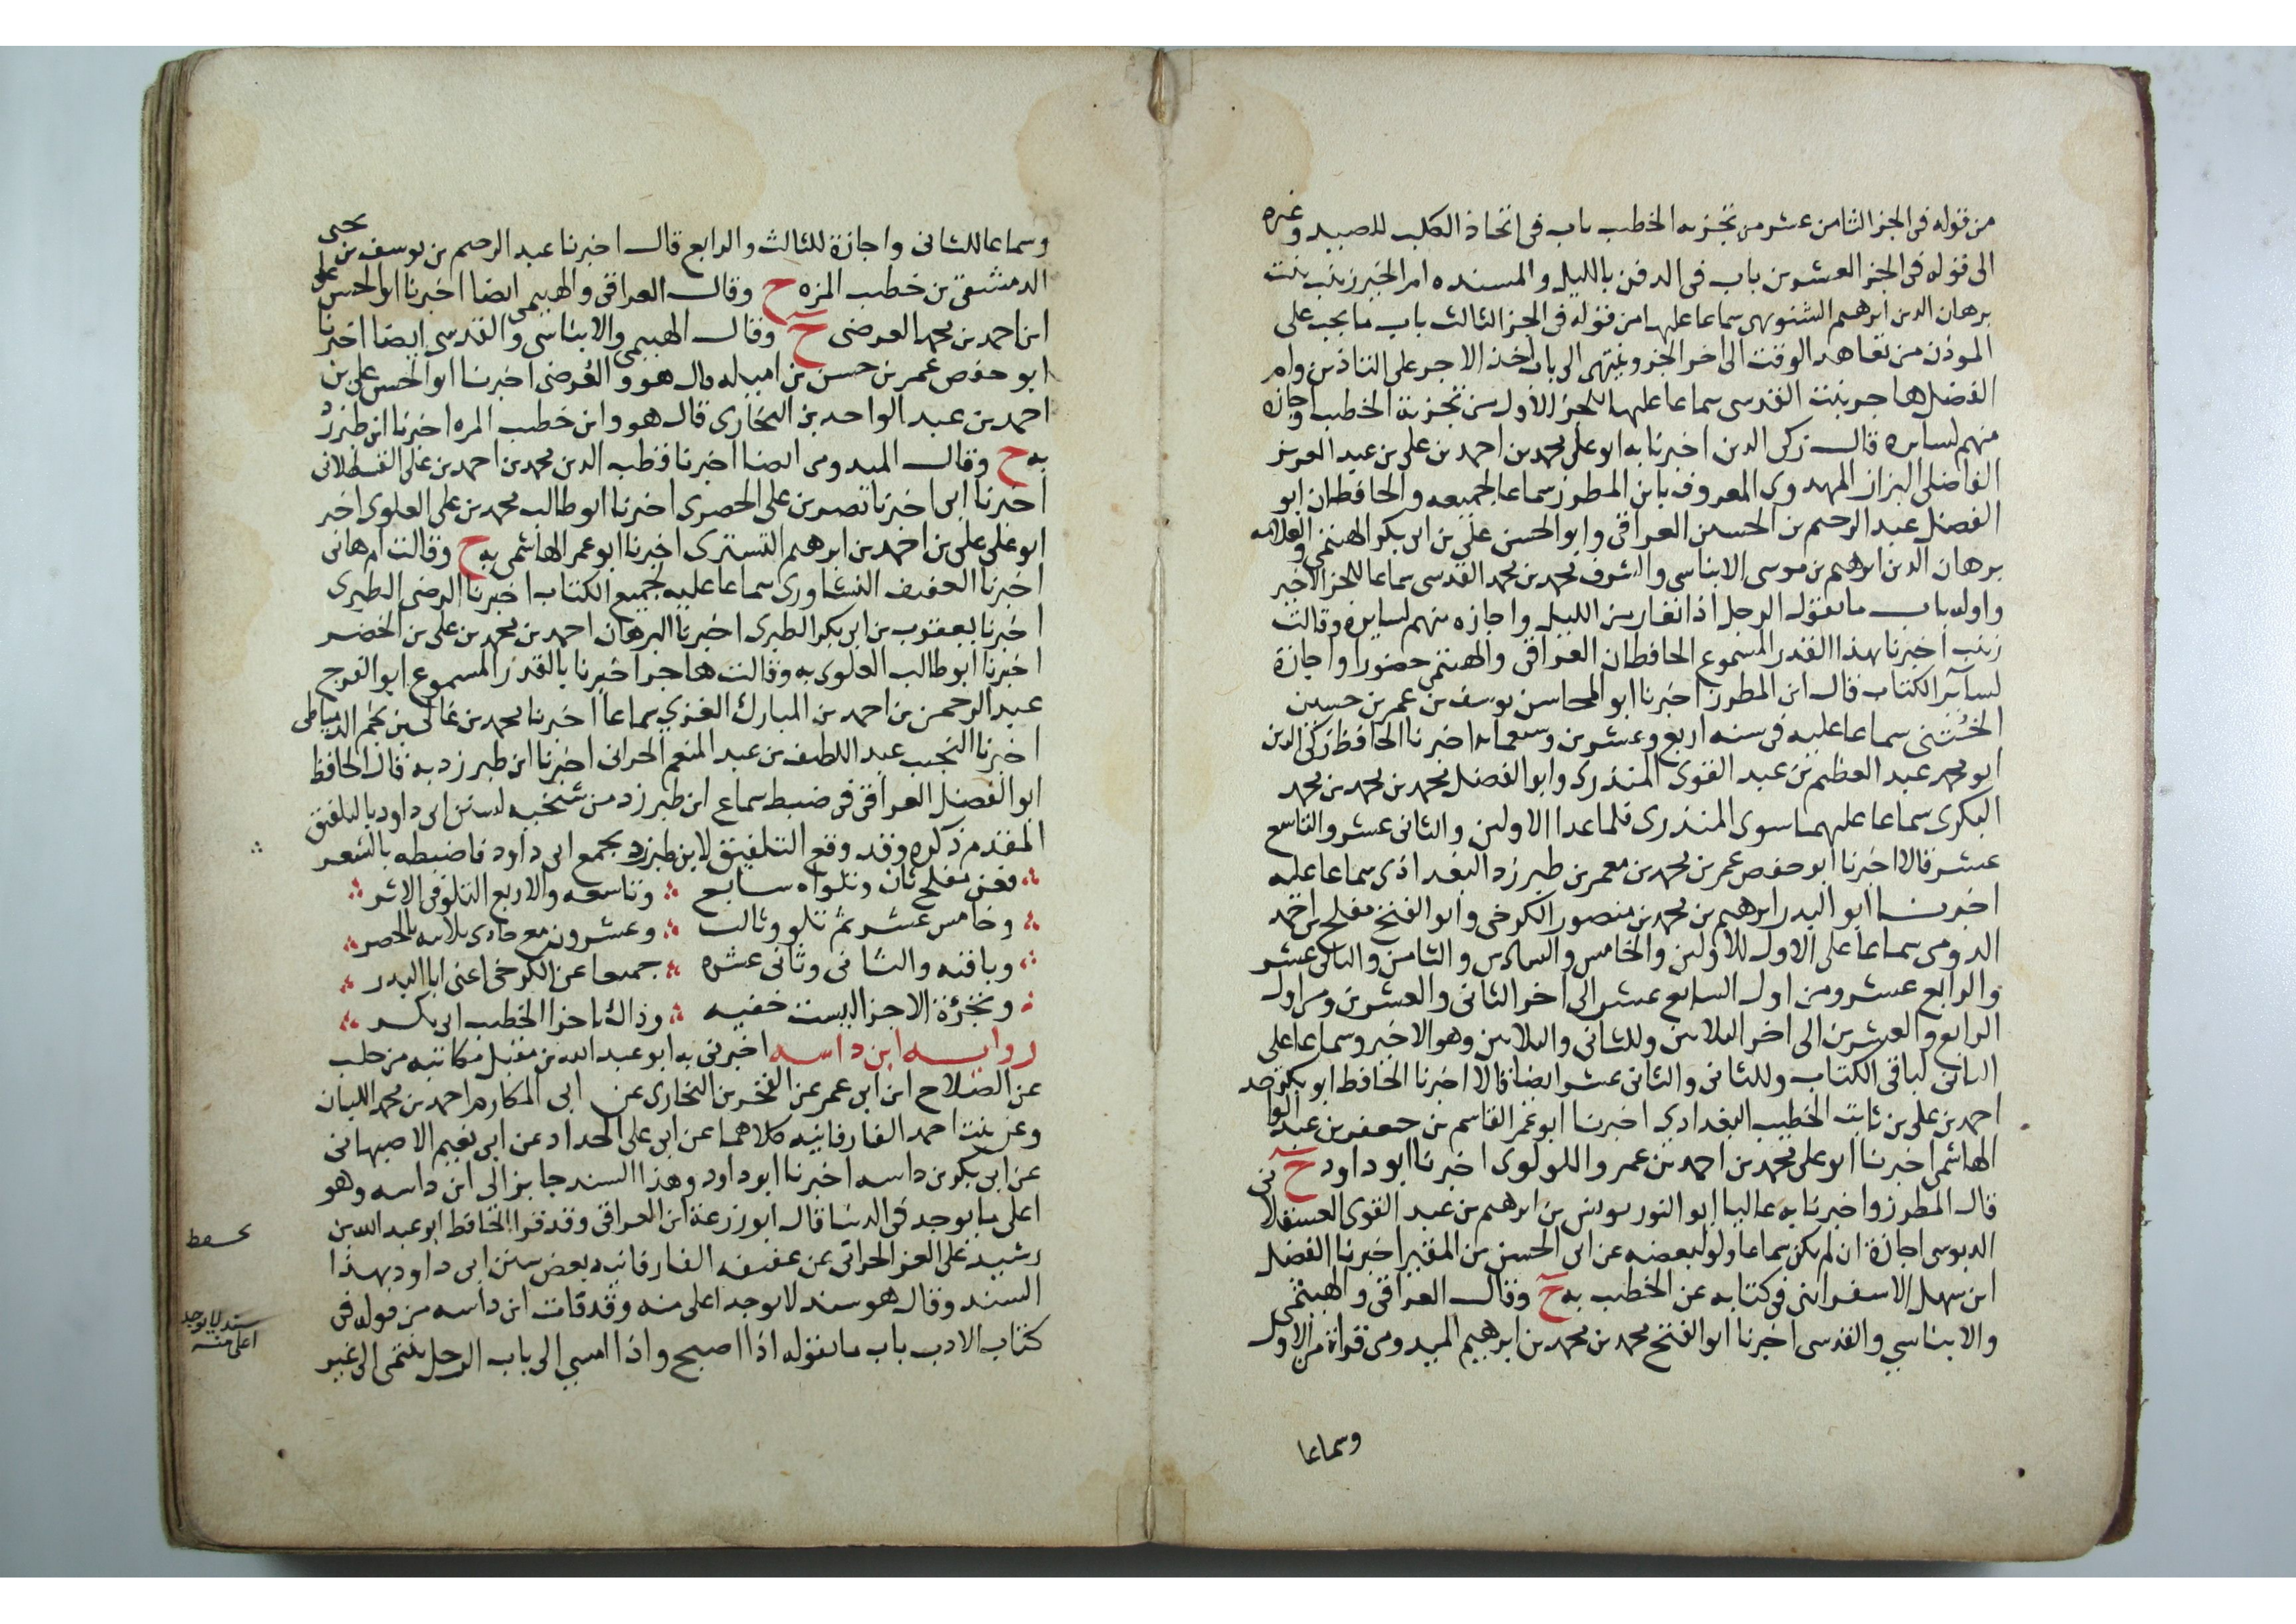 من قوله في الجز الثامن عشر من تجزيه الخطيب باب في اتخاذ الكلب للصيد وغيره
الى قوله في الجز العشرين باب في الدفن بالليل والمسنده ام الخير زينب بنت
برهان الدين ابرهيم الشنويهي سماعا عليها من قوله في الجز الثالث باب ما يجب على
الموذن من تعاهد الوقت الى اخر الجز وينتهي الى باب اخذ الاجر على التاذين وام
الفضل هاجر بنت القدسي سماعا عليها للجز الاول من تجزية الخطيب واجازه
منهم لسايره قال زكي الدين اخبرنا به ابو علي محمد بن احمد بن علي بن عبد العزيز
الفاضلي البزاز المهدوي المعروف بابن المطرز سماعا لجميعه والحافظان ابو
الفضل عبد الرحيم بن الحسين العراقي وابو الحسن علي بن ابي بكر الهيثمي والعلامه
برهان الدين ابرهيم بن موسى الابناسي والشرف محمد بن محمد القدسي سماعا للجز الاخير
واوله باب ما يقول الرجل اذا تعار من الليل واجازه منهم لسايره وقالت
زينب اخبرنا بهذا القدر المسموع الحافظان العراقي والهيثمي حضورا واجازة
لسآير الكتاب قال ابن المطرز اخبرنا ابو المحاسن يوسف بن عمر بن حسين
الخُتَني سماعا عليه في سنه اربع وعشرين وسبعمايه اخبرنا الحافظ زكي الدين
ابو محمد عبد العظيم بن عبد القوى المنذري وابو الفضل محمد بن محمد بن محمد
البكري سماعا عليهما سوى المنذري فلما عدا الاولين والثاني عشر والتاسع
عشر قالا اخبرنا ابو حفص عمر بن محمد بن معمر بن طبرزد البغداذي سماعا عليه
اخبرنا ابو البدر ابرهيم بن محمد بن منصور الكرخي وابو الفتح مفلح بن احمد
الدومي سماعا على الاول للاولين والخامس والسادس والثامن والثاني عشر
والرابع عشر ومن اول السابع عشر الى اخر الثاني والعشرين ومن اول
الرابع والعشرين الى اخر الثلاثين وللثاني والثلاثين وهو الاخير وسماعا على
الثاني لباقي الكتاب وللثاني والثاني عشر ايضا قالا اخبرنا الحافظ ابو بكر
احمد بن علي بن ثابت الخطيب البغدادي اخبرنا ابو عمر القاسم بن جعفر بن عبد الواحد
الهاشمي اخبرنا ابو علي محمد بن احمد بن عمرو اللولوي اخبرنا ابو داود ح
قال المطرز واخبرنا به عاليا ابو النور يونس بن ابرهيم بن عبد القوى العسقلاني
الدبوسي اجازة ان لم يكن سماعا ولو لبعضه عن ابي الحسن بن المقير اخبرنا الفضل
ابن سهل الاسفرايني في كتابه عن الخطيب به ح وقال العراقي والهيثمي
والابناسي والقدسي اخبرنا ابو الفتح محمد بن محمد بن ابرهيم الميدومي قراة من الاول
وسماعا
وسماعا للثاني واجازة للثالث والرابع قال اخبرنا عبد الرحيم بن يوسف بن يحيى
الدمشقي بن خطيب المزه ح وقال العراقي والهيثمي ايضا اخبرنا ابو الحسن علي
ابن احمد بن محمد العرضي ح وقال الهيثمي والابناسي والقدسي ايضا اخبرنا
ابو حفص عمر بن حسن بن اميله قال هو والعُرضي اخبرنا ابو الحسن علي بن
احمد بن عبد الواحد بن البخاري قال هو وابن خطيب المزه اخبرنا ابن طبرزد
به ح وقال الميدومي ايضا اخبرنا قطب الدين محمد بن احمد بن علي القسطلاني
اخبرنا ابي اخبرنا نصر بن علي الحصري اخبرنا ابو طالب محمد بن علي العلوى اخبر
ابو علي علي بن احمد بن ابرهيم التستري اخبرنا ابو عمر الهاشمي به ح وقالت ام هاني
اخبرنا العفيف النشاوري سماعا عليه لجميع الكتاب اخبرنا الرضي الطبري
اخبرنا يعقوب بن ابي بكر الطبري اخبرنا البرهان احمد بن محمد بن علي بن الخضر
اخبرنا ابو طالب العلوي به وقالت هاجر اخبرنا بالقدر المسموع ابو الفرج
عبد الرحمن بن احمد بن المبارك الغزي سماعا اخبرنا محمد بن غالي بن نجم الدمياطي
اخبرنا النجيب عبد اللطيف بن عبد المنعم الحراني اخبرنا ابن طبرزد به قال الحافظ
ابو الفضل العراقي في ضبط سماع ابن طبرزد من شيخيه لسنن ابي داود بالتلفيق
المقدم ذكره وقد وقع التلفيق لابن طبرزد بجمع ابي داود فاضبطه بالشعر
فعن مفلح ثان وتلواه سابع وتاسعه والاربع التلو في الاثر
وخامس عشر ثم تلو وثالث وعشرون مع حادي ثلاثيه بالحصر
وباقيه والثاني وثاني عشره جميعا عن الكرخي اعني ابا البدر
وتجزئة الاجزا ليست خفيه وذاك باجزا الخطيب ابي بكر
روايه ابن داسه اخبرني به ابو عبد الله بن مقبل مكاتبه من حلب
عن الصلاح ابن ابي عمر عن الفخر بن البخاري عن ابي المكارم احمد بن محمد اللبان
وعن بنت احمد الفارفانيه كلاهما عن ابي علي الحداد عن ابي نعيم الاصبهاني
عن ابي بكر بن داسه اخبرنا ابو داود وهذا السند جايز الى ابن داسه وهو
اعلى ما يوجد في الدنيا قال ابو زرعة ابن العراقي وقد قرا الحافظ ابو عبد الله بن
رشيد على العز الحراني عن عفيفه الفارفانيه بعض سنن ابي داود بهذا
السند وقال هو سند لا يوجد اعلى منه وقد فات ابن داسه من قوله في
كتاب الادب باب ما يقول اذا اصبح واذا امسي الى باب الرجل ينتمي الى غير
سند لا يوجد
اعلى منه